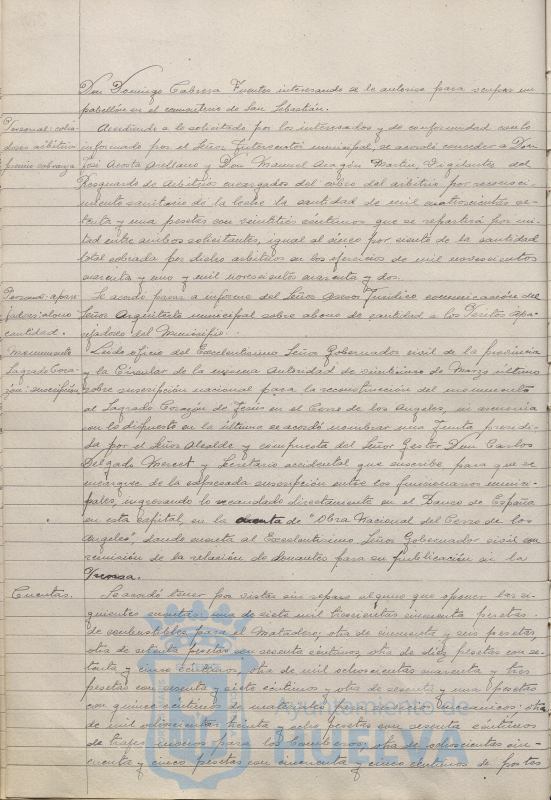 Don Domingo Cabrera Fuentes interesando se le autorice para ocupar un
pabellón en el cementerio de San Sebastián.
Personal: cobra-
dores arbitrio
premio cobranza
Accediendo a lo solicitado por los interesados y de conformidad con lo
informado por el Señor Interventor municipal, se acordó conceder a Don
José Acosta Arellano y Don Manuel Aragón Martín, Vigilantes del
Resguardo de Arbitrios encargados del cobro del arbitrio por reconoci-
miento sanitario de la leche la cantidad de mil cuatrocientas se-
tenta y una pesetas con veintitrés céntimos que se repartirá por mi-
tad entre ambos solicitantes, igual al cinco por ciento de la cantidad
total cobrada por dicho arbitrio en los ejercicios de mil novecientos
cuarenta y uno y mil novecientos cuarenta y dos.
Personal: apare-
jadores: abono
cantidad.
Se acordó pasar a informe del Señor Asesor Jurídico comunicación del
Señor Arquitecto municipal sobre abono de cantidad a los Peritos Apa-
rejadores del Municipio.
Monumento
Sagrado Cora-
zón: suscripción
Leído oficio del Excelentísimo Señor Gobernador civil de la provincia
y la Circular de la misma Autoridad de veintiuno de Marzo último
sobre suscripción nacional para la reconstrucción del monumento
al Sagrado Corazón de Jesús en el Cerro de los Angeles, en armonía
con lo dispuesto en la última se acordó nombrar una Junta presidi-
da por el Señor Alcalde y compuesta del Señor Gestor Don Carlos
Delgado Mercet y Secretario accidental que suscribe para que se
encargue de la expresada suscripción entre los funcionarios munici-
pales, ingresando lo recaudado directamente en el Banco de España
en esta capital, en la cuenta de "Obra Nacional del Cerro de los
Angeles", dando cuenta al Excelentísimo Señor Gobernador civil con
remisión de la relación de donantes para su publicación en la
Prensa.
Cuentas.
Se acordó tener por vistas sin reparo alguno que oponer las si-
guientes cuentas: una de siete mil trescientas cincuenta pesetas
de combustibles para el Matadero; otra de cincuenta y seis pesetas,
otra de setenta pesetas con sesenta céntimos, otra de diez pesetas con se-
tenta y cinco céntimos, otra de mil ochocientas cuarenta y tres
pesetas con sesenta y siete céntimos y otra de sesenta y una pesetas
con quince céntimos de materiales para obras municipales; otra
de mil ochocientas treinta y ocho pesetas con sesenta céntimos
de trajes monos para los bomberos; otra de ochocientas cin-
cuenta y cinco pesetas con cincuenta y cinco céntimos de portes
Ayuntamiento de
HUELVA